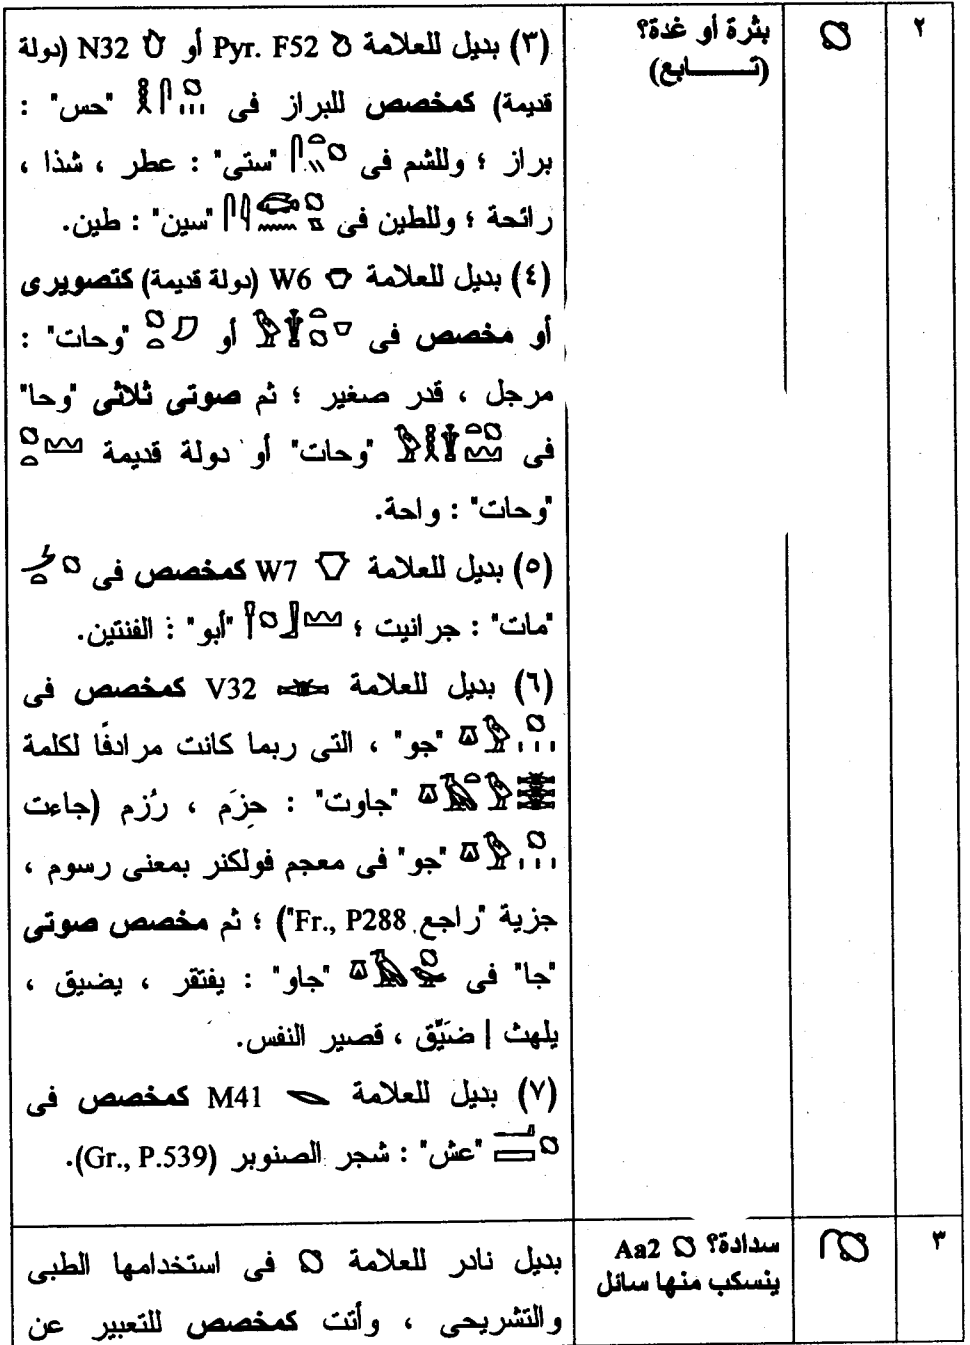 ٢
بثرة أو غدة؟
(تـــــابع)
(٣) بديل للعلامة Pyr. F52 أو N32 (دولة
قديمة) كمخصص للبراز فى "حس" :
براز ؛ وللشم فى "ستى" : عطر ، شذا ،
رائحة ؛ وللطين فى "سين" : طين.
(٤) بديل للعلامة W6 (دولة قديمة) كتصويرى
أو مخصص فى أو "وحات" :
مرجل ، قدر صغير ؛ ثم صوتى ثلاثى "وحا"
فى "وحات" أو دولة قديمة
"وحات" : واحة.
(٥) بديل للعلامة W7 كمخصص فى
"مات" : جرانيت ؛ "أبو" : الفنتين.
(٦) بديل للعلامة V32 كمخصص فى
"جو" ، التى ربما كانت مرادفًا لكلمة
"جاوت" : حزَم ، رُزم (جاءت
"جو" فى معجم فولكنر بمعنى رسوم ،
جزية "راجع Fr., P288") ؛ ثم مخصص صوتى
"جا" فى "جاو" : يفتقر ، يضيق ،
يلهث | ضيِّق ، قصير النفس.
(٧) بديل للعلامة M41 كمخصص فى
"عش" : شجر الصنوبر (Gr., P.539).
٣
سدادة؟ Aa2
ينسكب منها سائل
بديل نادر للعلامة فى استخدامها الطبى
والتشريحى ، وأتت كمخصص للتعبير عن